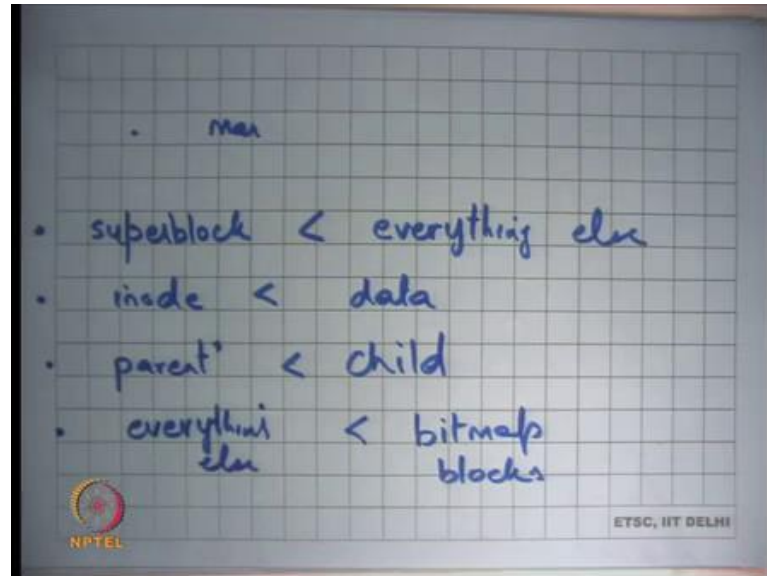 • man
• superblock < everything else
• inode < data
• parent' < child
• everything < bitmap
else blocks
NPTEL
ETSC, IIT DELHI